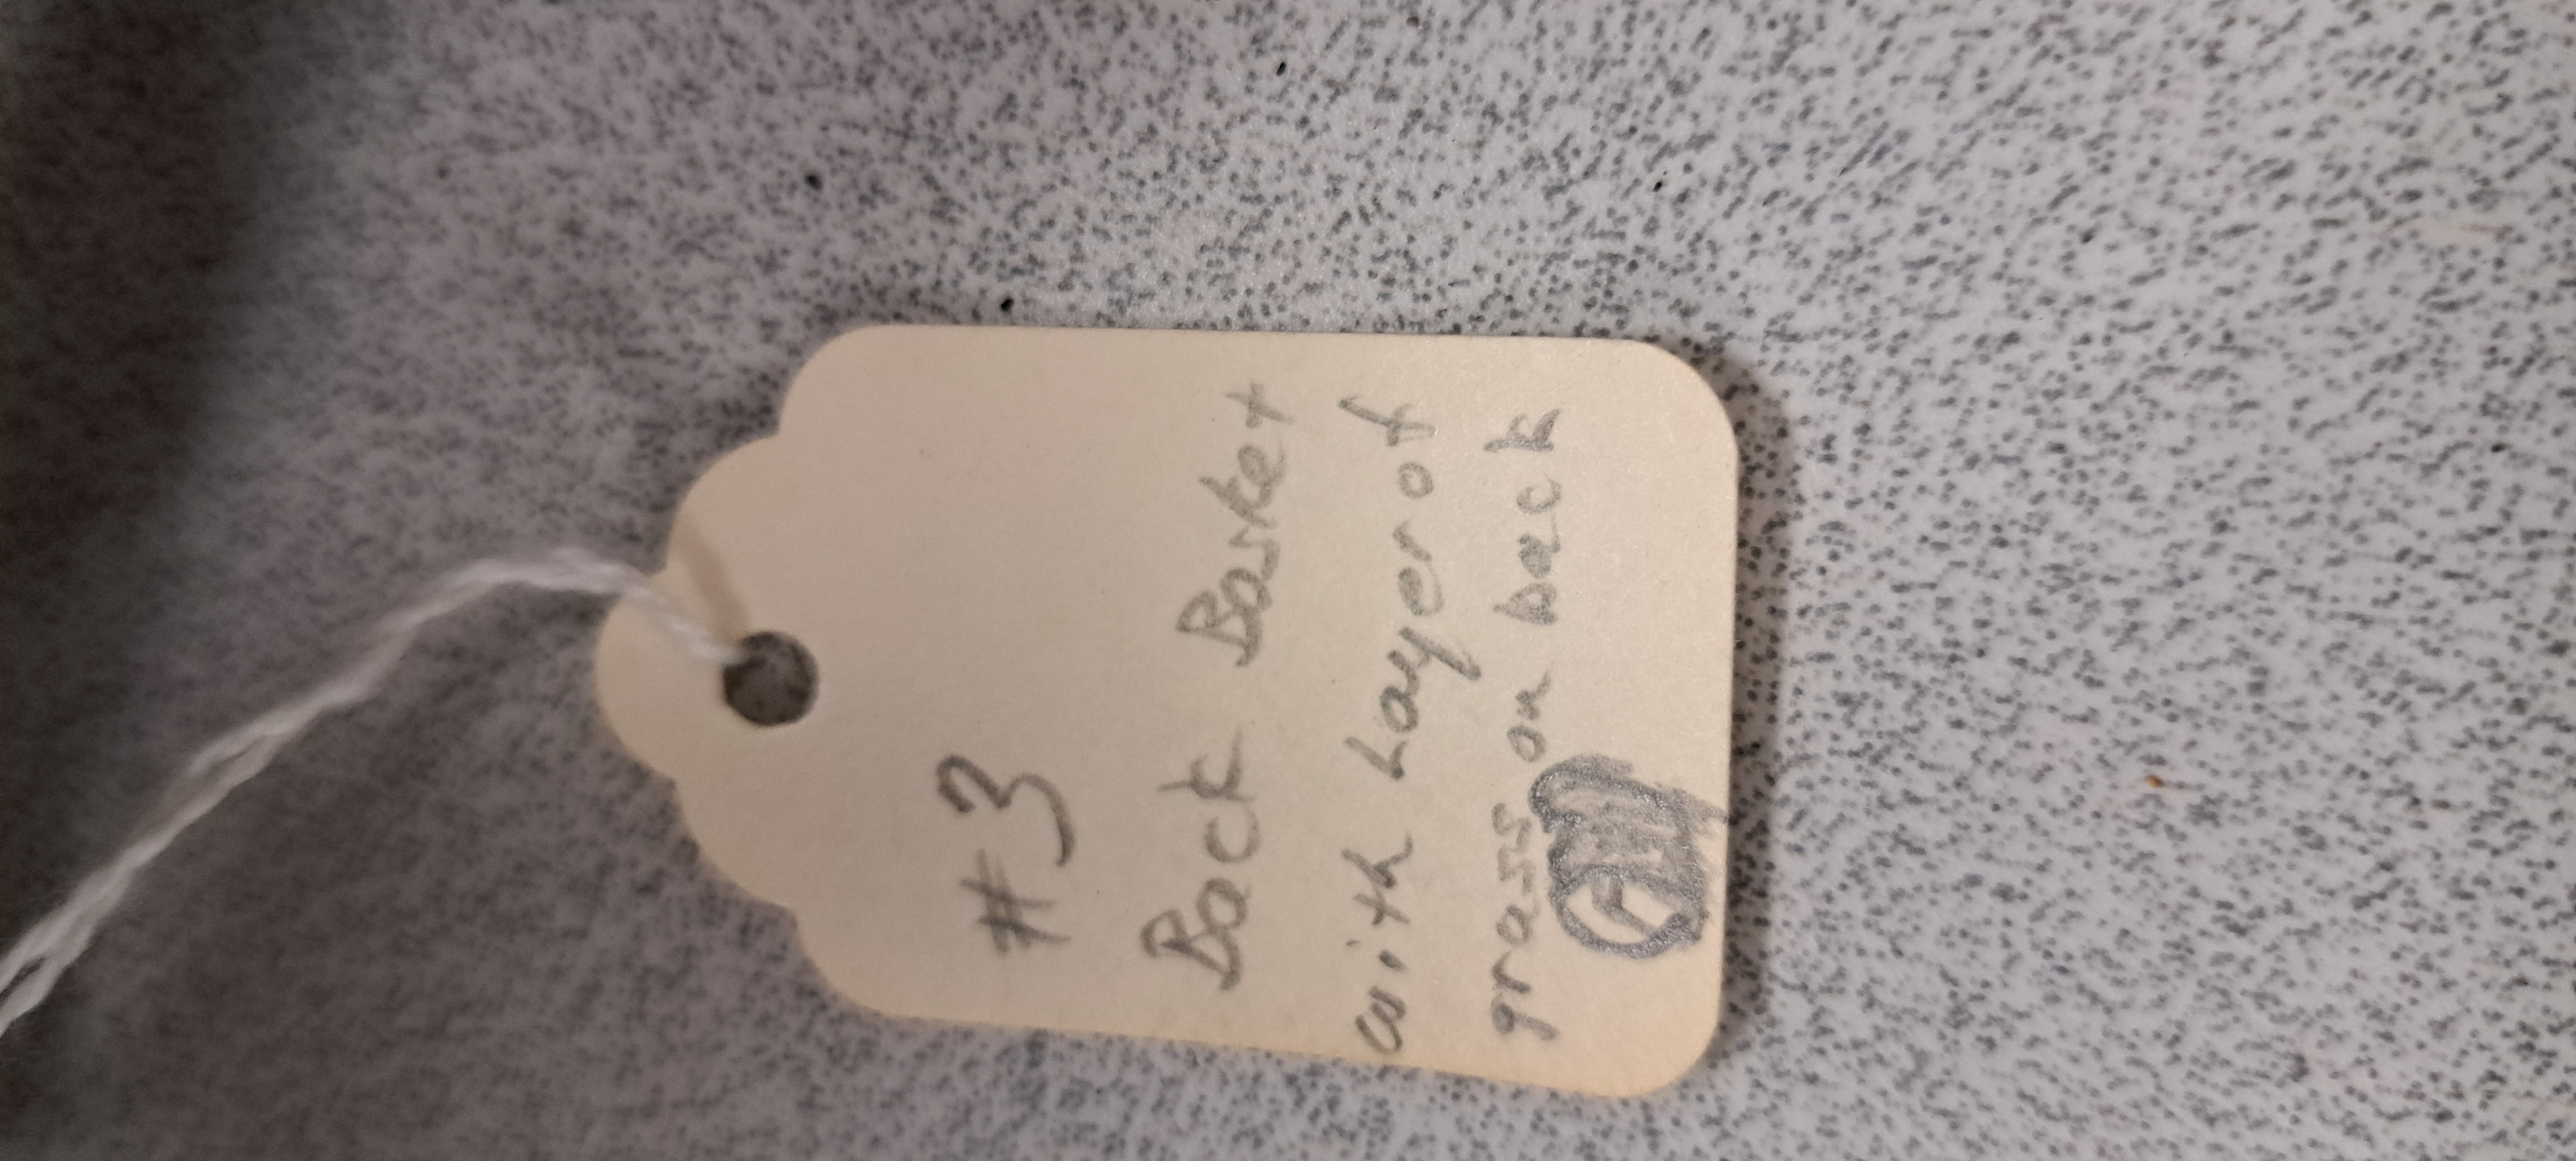 #3
Back Basket
with Layer of
grass on back